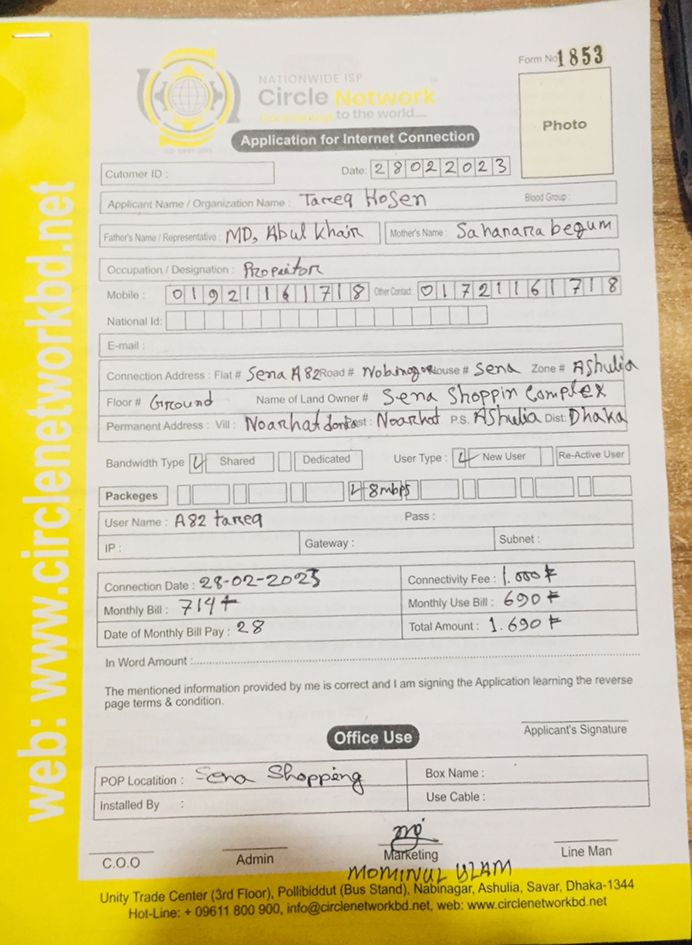 Form No 1853
NATIONWIDE ISP
Circle Network
to the world....
Application for Internet Connection
Photo
Cutomer ID :
Date: 28022023
Applicant Name / Organization Name : Tareq Hosen Blood Group :
Father's Name / Representative : MD, Abul Khair Mother's Name : Sahanara begum
Occupation / Designation : Propritor
Mobile : 01921161718 Other Contact : 01721161718
National Id:
E-mail :
Connection Address : Flat # Sena A82 Road # Nobinagor House # Sena Zone # AShulia
Floor # Ground Name of Land Owner # Sena Shoppin Complex
Permanent Address : Vill : Noarhat Post : Noarhat P.S. AShulia Dist: Dhaka
Bandwidth Type Shared Dedicated User Type : New User Re-Active User
Packeges 8mbps
User Name : A82 tareq Pass :
IP : Gateway : Subnet :
Connection Date : 28-02-2023 Connectivity Fee : 1.000 ৳
Monthly Bill : 714 ৳ Monthly Use Bill : 690 ৳
Date of Monthly Bill Pay : 28 Total Amount : 1.690 ৳
In Word Amount :
The mentioned information provided by me is correct and I am signing the Application learning the reverse
page terms & condition.
Applicant's Signature
Office Use
POP Locatition : Sena Shopping Box Name :
Installed By : Use Cable :
C.O.O Admin Marketing Line Man
MOMINUL ISLAM
Unity Trade Center (3rd Floor), Pollibiddut (Bus Stand), Nabinagar, Ashulia, Savar, Dhaka-1344
Hot-Line: + 09611 800 900, info@circlenetworkbd.net, web: www.circlenetworkbd.net
web: www.circlenetworkbd.net